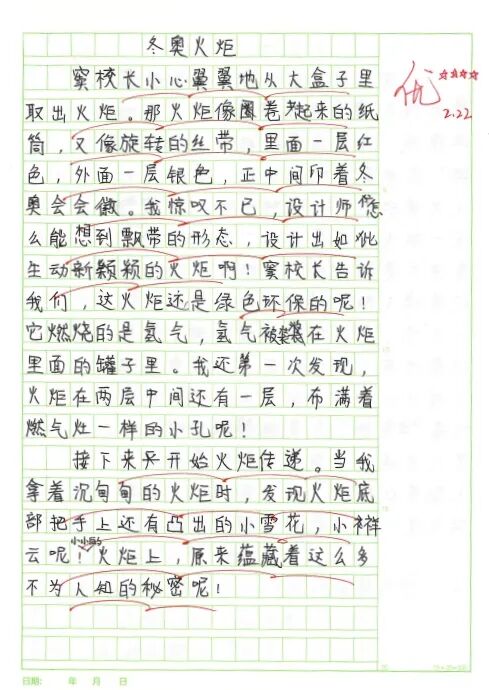 冬奥火炬
窦校长小心翼翼地从大盒子里
取出火炬。那火炬像圈卷起来的纸
筒，又像旋转的丝带，里面一层红
色，外面一层银色，正中间印着冬
奥会会徽。我惊叹不已，设计师怎
么能想到飘带的形态，设计出如此
生动新颖的火炬啊！窦校长告诉
我们，这火炬还是绿色环保的呢！
它燃烧的是氢气，氢气被装在火炬
里面的罐子里。我还第一次发现，
火炬在两层中间还有一层，布满着
燃气灶一样的小孔呢！
接下来开始火炬传递。当我
拿着沉甸甸的火炬时，发现火炬底
部把手上还有凸出的小雪花，小祥
云呢！小小的火炬上，原来蕴藏着这么多
不为人知的秘密呢！
优
2.22
日期： 年 月 日